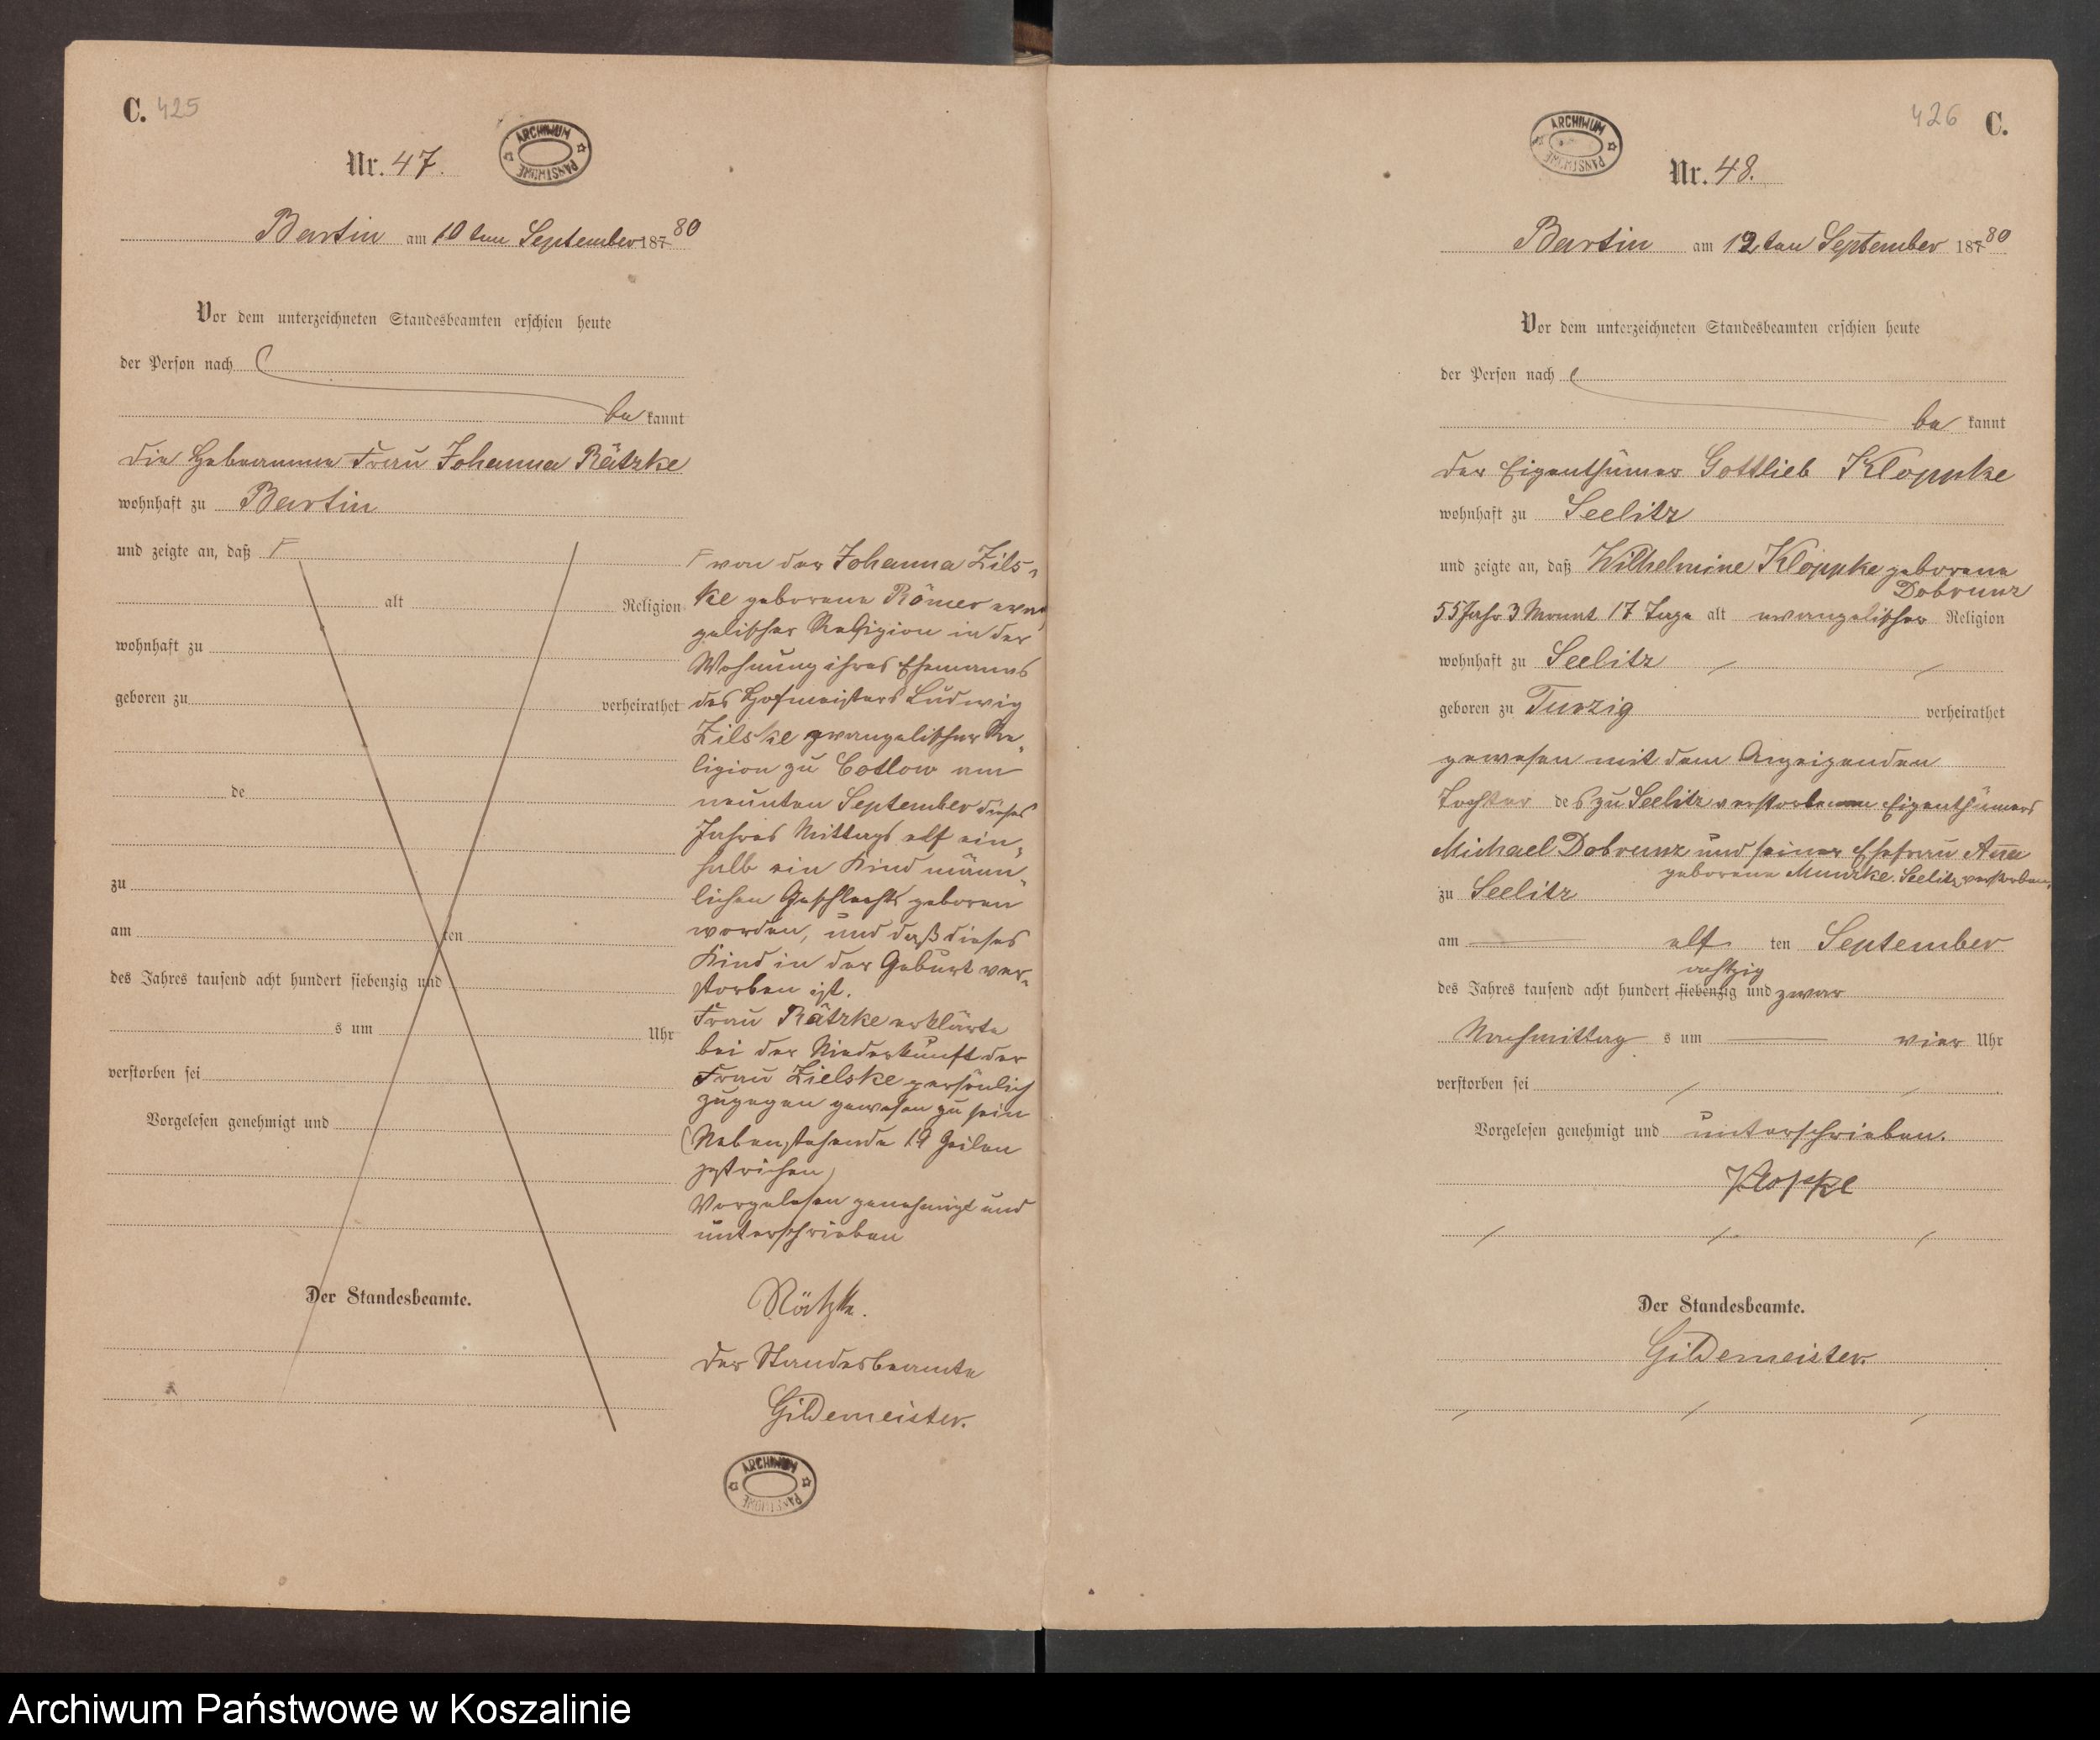 C. 425
ARCHIWUM PAŃSTWOWE
Nr. 47.
Bartin am 10 ten September 187 80
Vor dem unterzeichneten Standesbeamten erschien heute
der Person nach
be kannt
die Hebeamme Frau Johanna Rätzke
wohnhaft zu Bartin
und zeigte an, daß
alt Religion
wohnhaft zu
geboren zu verheirathet
de
zu
am ten
des Jahres tausend acht hundert siebenzig und
s um Uhr
verstorben sei
Vorgelesen genehmigt und
Der Standesbeamte.
von der Johanna Zils-
ke geborene Römer evan-
gelischer Religion in der
Wohnung ihres Ehemanns
des Hofmeisters Ludwig
Zilske evangelischer Re-
ligion zu Cotlow am
neunten September dieses
Jahres Mittags elf ein-
halb ein Kind männ-
lichen Geschlechts geboren
worden, und daß dieses
Kind in der Geburt ver-
storben ist.
Frau Rätzke erklärte
bei der Niederkunft der
Frau Zielske persönlich
zugegen gewesen zu sein
(Nebenstehende 19 Zeilen
gestrichen)
Vorgelesen genehmigt und
unterschrieben
Rätzke.
Der Standesbeamte
Gildemeister.
ARCHIWUM PAŃSTWOWE
426 C.
ARCHIWUM PAŃSTWOWE
Nr. 48.
Bartin am 12 ten September 187 80
Vor dem unterzeichneten Standesbeamten erschien heute
der Person nach
be kannt
der Eigenthümer Gottlieb Kloppke
wohnhaft zu Seelitz
und zeigte an, daß Wilhelmine Kloppke geborene
Dobrunz
55 Jahr 3 Monat 17 Tage alt evangelischer Religion
wohnhaft zu Seelitz
geboren zu Turzig verheirathet
gewesen mit dem Anzeigenden
Tochter des zu Seelitz verstorbenen Eigenthümers
Michael Dobrunz und seiner Ehefrau Anna
geborene Seelitz verstorben
zu Seelitz
am elf ten September
achtzig
des Jahres tausend acht hundert siebenzig und zwar
Nachmittag s um vier Uhr
verstorben sei
Vorgelesen genehmigt und unterschrieben.
Kloppke
Der Standesbeamte.
Gildemeister.
Archiwum Państwowe w Koszalinie